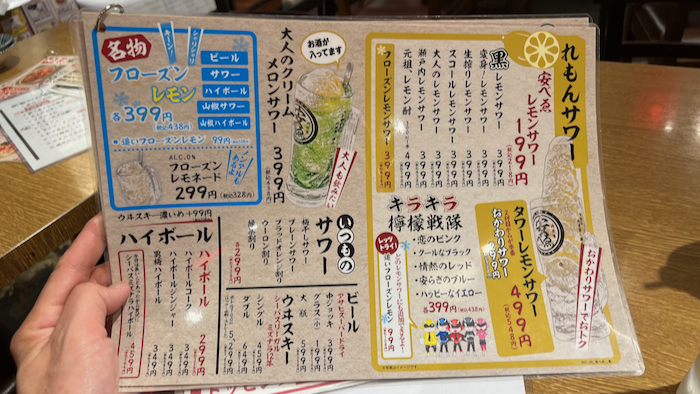 名物
シャリシャリ
キーン!
フローズン
レモン
各399円
(税込438円)
追いフローズンレモン 99円
ビール
サワー
ハイボール
山椒サワー
山椒ハイボール
ALC.0%
フローズン
レモネード
299円(税込328円)
ノンアルもあるよ
お酒が入ってます
大人のクリーム
メロンサワー
399円
大人も飲みたい
れもんサワー
安べゑ
レモンサワー
199円
黒レモンサワー 399円
変身!レモンサワー 399円
生搾りレモンサワー 399円
スコールレモンサワー 399円
大人のレモンサワー 399円
瀬戸内レモンサワー 399円
元祖、レモン酎 499円
フローズンレモンサワー 399円
タワーレモンサワー
499円
(税込548円)
おかわりサワー
299円
おかわりサワーでおトク
キラキラ
檸檬戦隊
・恋のピンク
・クールなブラック
・情熱のレッド
・安らぎのブルー
・ハッピーなイエロー
各399円(税込438円)
レッツトライ!
追いフローズンレモン
99円
いつもの
サワー
梅干しサワー
プレーンサワー
ブラッドオレンジ割り
ウーロン割り
緑茶割り
各299円
ビール
アサヒスーパードライ
中ジョッキ 399円
グラス(小) 199円
大瓶 599円
ウヰスキー
シーバスリーガル
ミズナラ12年
シングル
ダブル
ウヰスキー濃いめ+99円
ハイボール
ハイボール 299円
ハイボールコーク 349円
ハイボールジンジャー 349円
宮崎ハイボール 349円
459円